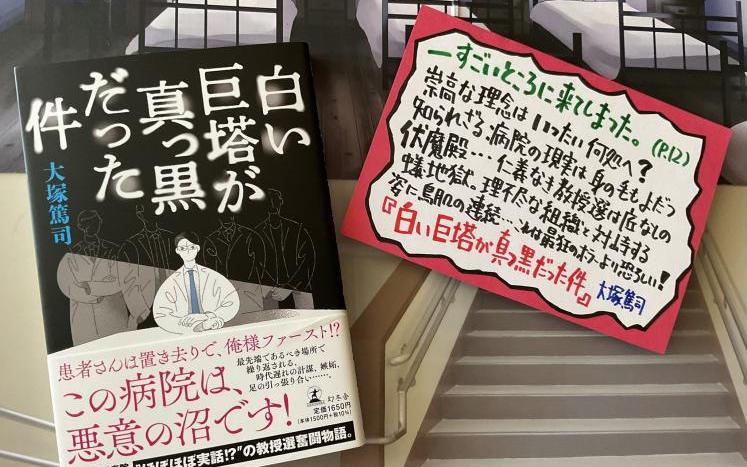 白い
巨塔が
真っ黒
だった
件
大塚篤司
患者さんは置き去りで、俺様ファースト!?
最先端であるべき場所で
繰り返される、
時代遅れの計謀、嫉妬、
足の引っ張り合い……。
この病院は、
悪意の沼です!
幻冬舎
定価1650円
(本体1500円+税10%)
"ほぼほぼ実話!?"の教授選奮闘物語。
一すごいところに来てしまった。(P.12)
崇高な理念はいったい何処へ?
知られざる病院の現実は身の毛もよだつ
伏魔殿…仁義なき教授選は底なしの
蟻地獄。理不尽な組織と対峙する
姿に鳥肌の連続…
最狂のホラーより恐ろしい!
『白い巨塔が真っ黒だった件』
大塚篤司